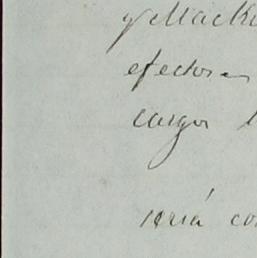 y Mack
efectos en
cargo
seria co